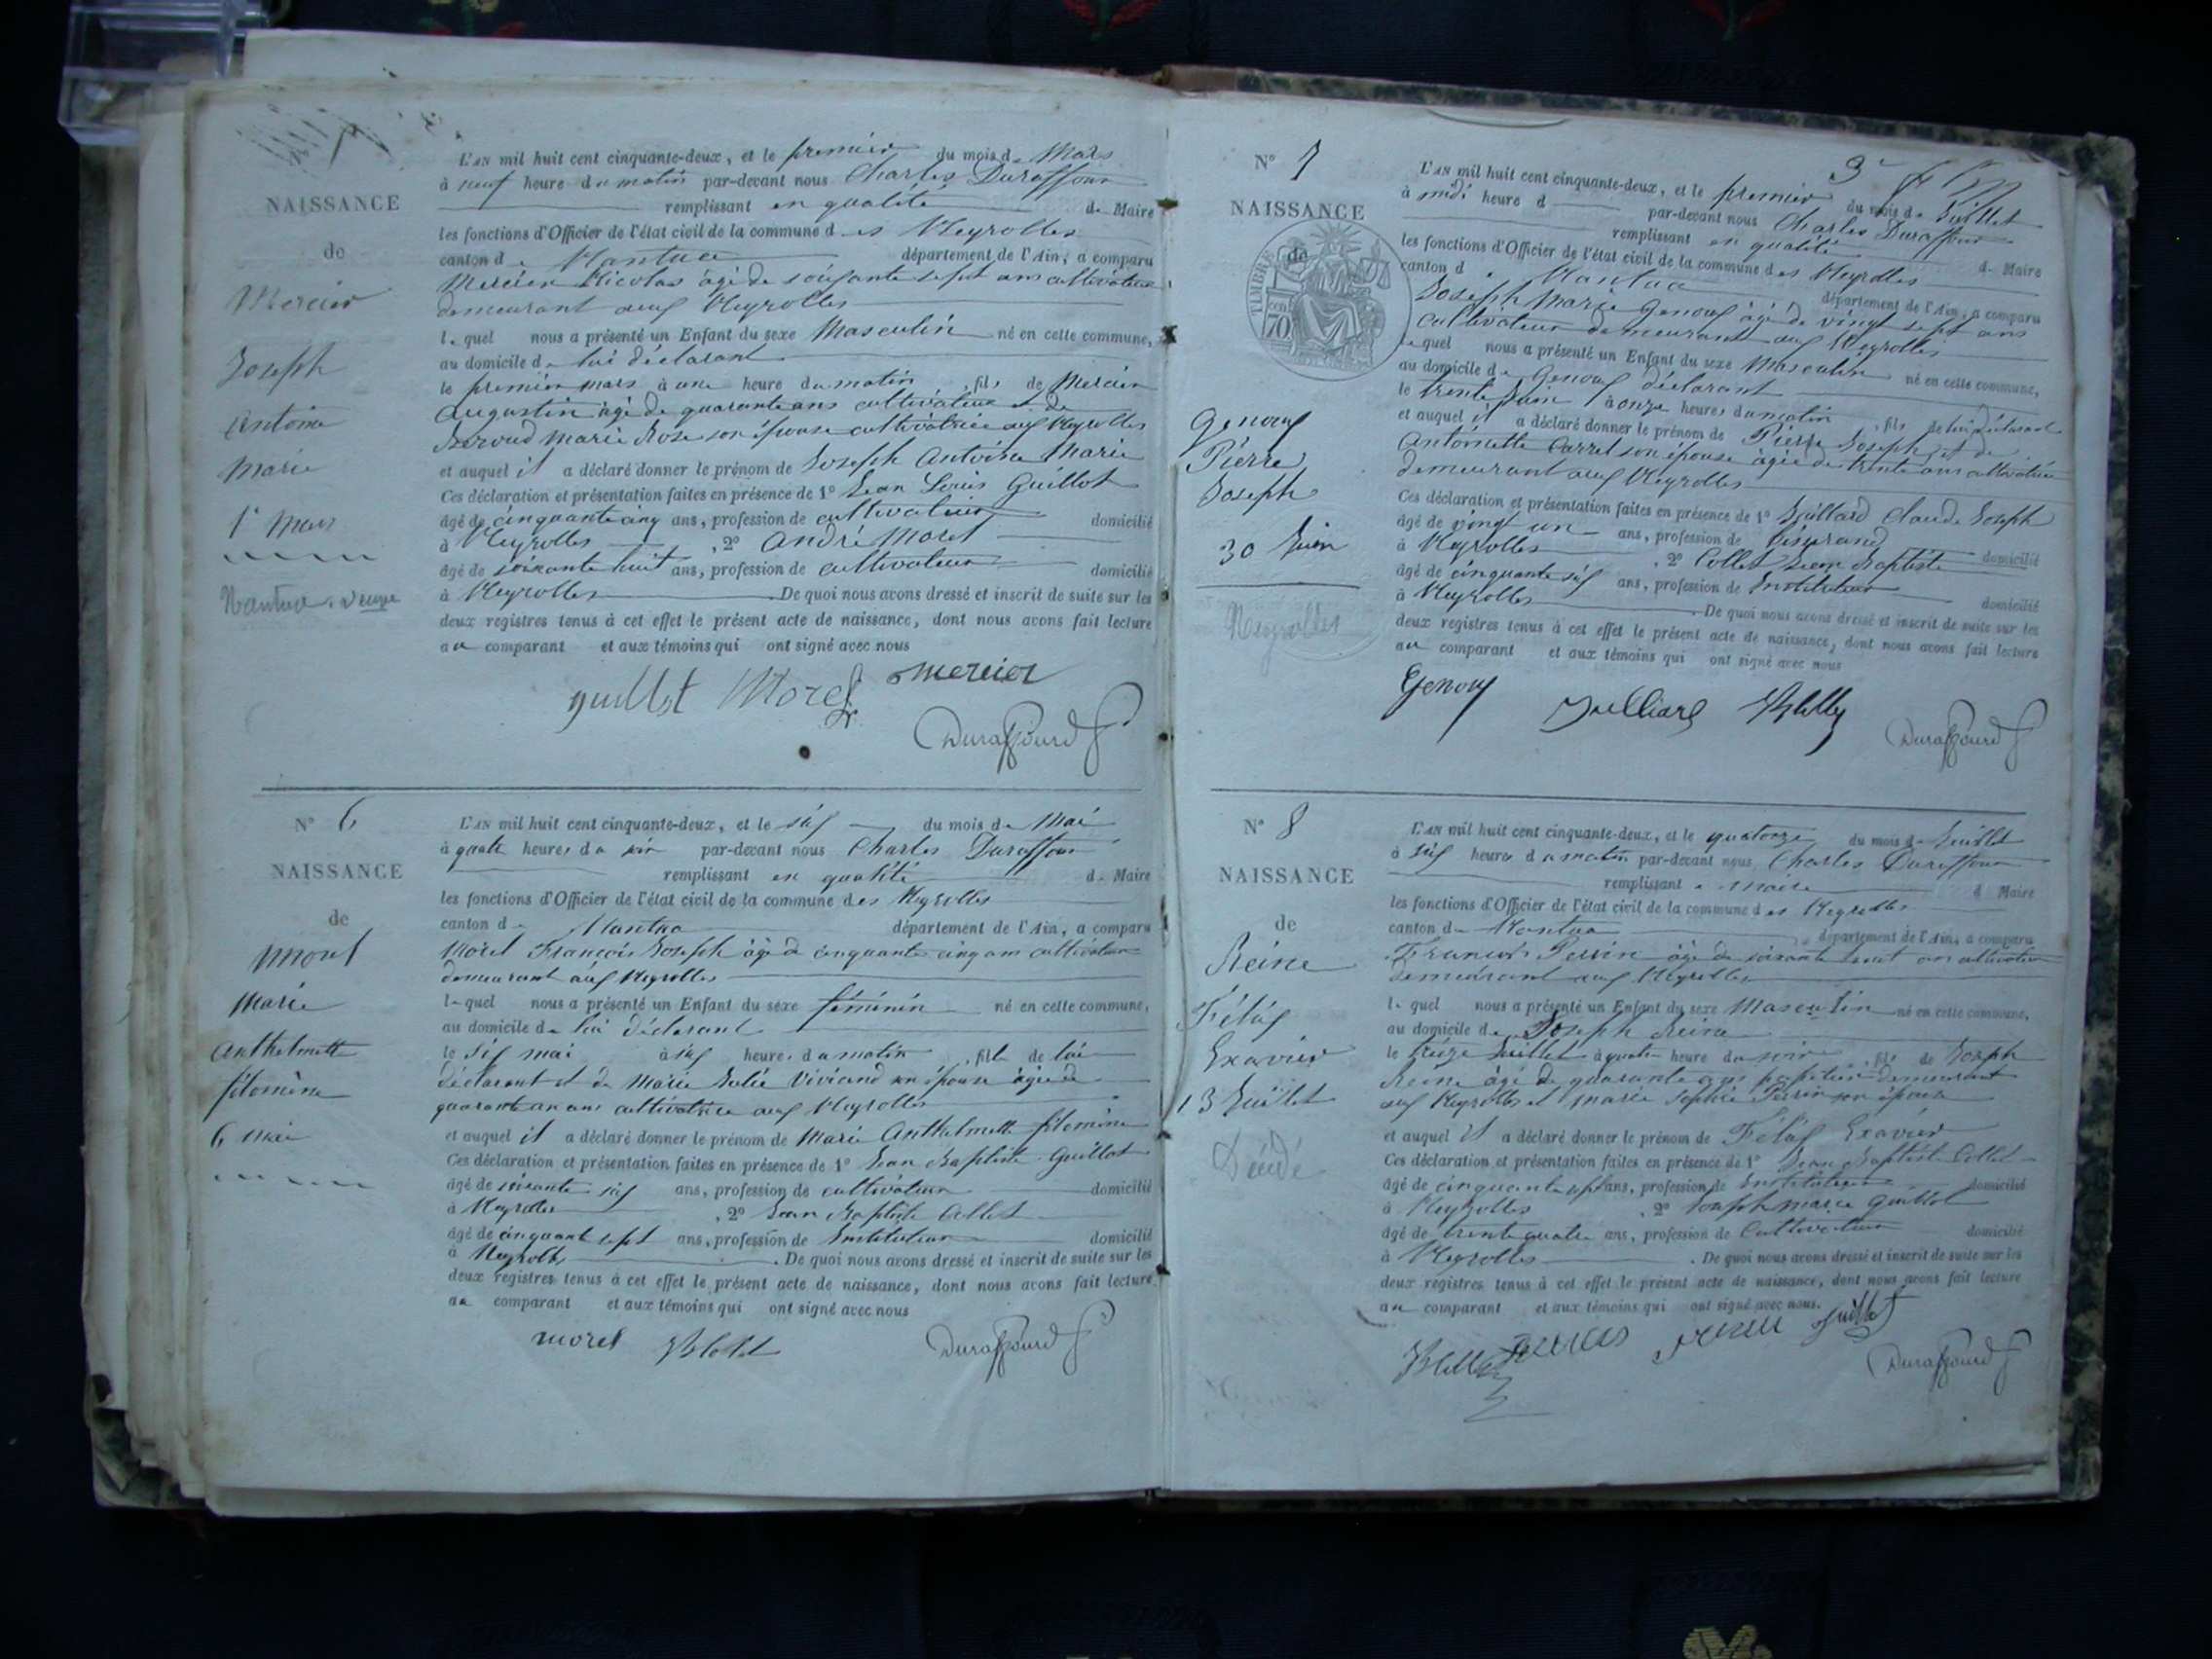 NAISSANCE
de
Mercier
Joseph
Antoine
Marie
1er Mars
Nantua. veuve
L'AN mil huit cent cinquante-deux, et le premier du mois de Mars
à neuf heure du matin par-devant nous Charles Duraffour
remplissant en qualité de Maire
les fonctions d'Officier de l'état civil de la commune des Neyrolles
canton de Nantua département de l'Ain, a comparu
Mercier Nicolas âgé de soixante sept ans cultivateur
demeurant aux Neyrolles
lequel nous a présenté un Enfant du sexe Masculin né en cette commune,
au domicile de lui déclarant
le premier mars à une heure du matin, fils de Mercier
Augustin âgé de quarante ans cultivateur et de
marie Rose son épouse cultivatrice aux Neyrolles
et auquel il a déclaré donner le prénom de Joseph Antoine Marie
Ces déclaration et présentation faites en présence de 1° Jean Louis Guillot
âgé de cinquante cinq ans, profession de cultivateur domicilié
à Neyrolles, 2° André Morel
âgé de soixante huit ans, profession de cultivateur domicilié
à Neyrolles. De quoi nous avons dressé et inscrit de suite sur les
deux registres tenus à cet effet le présent acte de naissance, dont nous avons fait lecture
au comparant et aux témoins qui ont signé avec nous
guillot Morel mercier
Duraffourd
N° 6
NAISSANCE
de
Morel
Marie
Anthelmette
filomène
6 Mai
L'AN mil huit cent cinquante-deux, et le six du mois de Mai
à quatre heures du soir par-devant nous Charles Duraffour
remplissant en qualité de Maire
les fonctions d'Officier de l'état civil de la commune des Neyrolles
canton de Nantua département de l'Ain, a comparu
Morel François Joseph âgé de cinquante cinq ans cultivateur
demeurant aux Neyrolles
lequel nous a présenté un Enfant du sexe féminin né en cette commune,
au domicile de lui déclarant
le six mai à six heures du matin, fille de lui
déclarant et de Marie Julie Viviand son épouse âgée de
quarante un ans cultivatrice aux Neyrolles
et auquel il a déclaré donner le prénom de Marie Anthelmette filomène
Ces déclaration et présentation faites en présence de 1° Jean Baptiste Guillot
âgé de soixante six ans, profession de cultivateur domicilié
à Neyrolles, 2° Jean Baptiste Collet
âgé de cinquante sept ans, profession de Instituteur domicilié
à Neyrolles. De quoi nous avons dressé et inscrit de suite sur les
deux registres tenus à cet effet le présent acte de naissance, dont nous avons fait lecture
au comparant et aux témoins qui ont signé avec nous
morel
Duraffourd
N° 7
NAISSANCE
de
TIMBRE
70
Genoux
Pierre
Joseph
30 Juin
Neyrolles
L'AN mil huit cent cinquante-deux, et le premier du mois de Juillet
à midi heure d par-devant nous Charles Duraffour
remplissant en qualité de Maire
les fonctions d'Officier de l'état civil de la commune des Neyrolles
canton d Nantua département de l'Ain, a comparu
Joseph Marie Genoux âgé de vingt sept ans
cultivateur demeurant aux Neyrolles
lequel nous a présenté un Enfant du sexe Masculin né en cette commune,
au domicile de Genoux déclarant
le trente Juin à onze heures du matin, fils de lui déclarant
et auquel il a déclaré donner le prénom de Pierre Joseph et de
Antoinette Carrel son épouse âgée de trente ans cultivatrice
demeurant aux Neyrolles
Ces déclaration et présentation faites en présence de 1° Juillard Claude Joseph
âgé de vingt un ans, profession de domicilié
à Neyrolles, 2° Collet Jean Baptiste
âgé de cinquante six ans, profession de Instituteur domicilié
à Neyrolles. De quoi nous avons dressé et inscrit de suite sur les
deux registres tenus à cet effet le présent acte de naissance, dont nous avons fait lecture
au comparant et aux témoins qui ont signé avec nous
Genoux Juilliard
Duraffourd
N° 8
NAISSANCE
de
Reine
Félix
Exavier
13 Juillet
Décédé
L'AN mil huit cent cinquante-deux, et le quatorze du mois de Juillet
à six heures du matin par-devant nous Charles Duraffour
remplissant maire d Maire
les fonctions d'Officier de l'état civil de la commune des Neyrolles
canton de Nantua département de l'Ain, a comparu
François Perrin âgé de soixante huit ans cultivateur
demeurant aux Neyrolles
lequel nous a présenté un Enfant du sexe Masculin né en cette commune,
au domicile de Joseph Reine
le treize Juillet à quatre heure du soir, fils de Joseph
Reine âgé de quarante ans papetier demeurant
aux Neyrolles et marie Sophie Perrin son épouse
et auquel il a déclaré donner le prénom de Félix Exavier
Ces déclaration et présentation faites en présence de 1° Jean Baptiste Collet
âgé de cinquante sept ans, profession de Instituteur domicilié
à Neyrolles, 2° Joseph marie Guillot
âgé de trente quatre ans, profession de Cultivateur domicilié
à Neyrolles. De quoi nous avons dressé et inscrit de suite sur les
deux registres tenus à cet effet le présent acte de naissance, dont nous avons fait lecture
au comparant et aux témoins qui ont signé avec nous.
guillot
Duraffourd